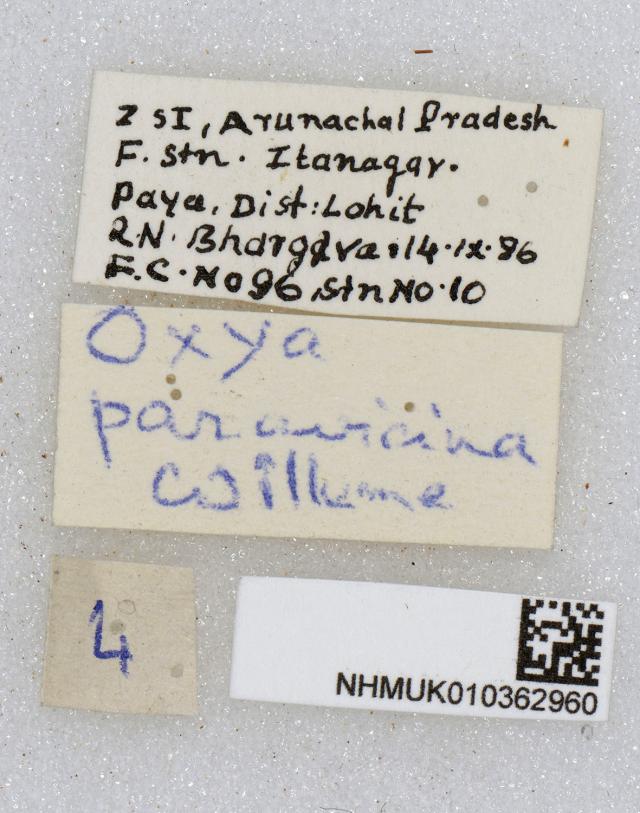 Z SI, Arunachal Pradesh
F. Stn. Itanagar.
Paya, Dist: Lohit
R.N. Bhargava. 14.ix.86
F.C. No 96, Stn No. 10
Oxya
paravicina
Willemse
4
NHMUK010362960